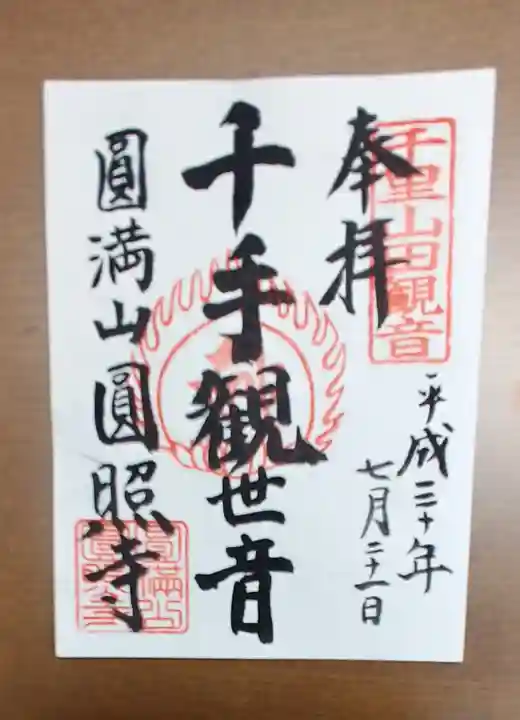 千里山田観音
奉拝
平成三十年
七月二十一日
千手観世音
圓満山圓照寺